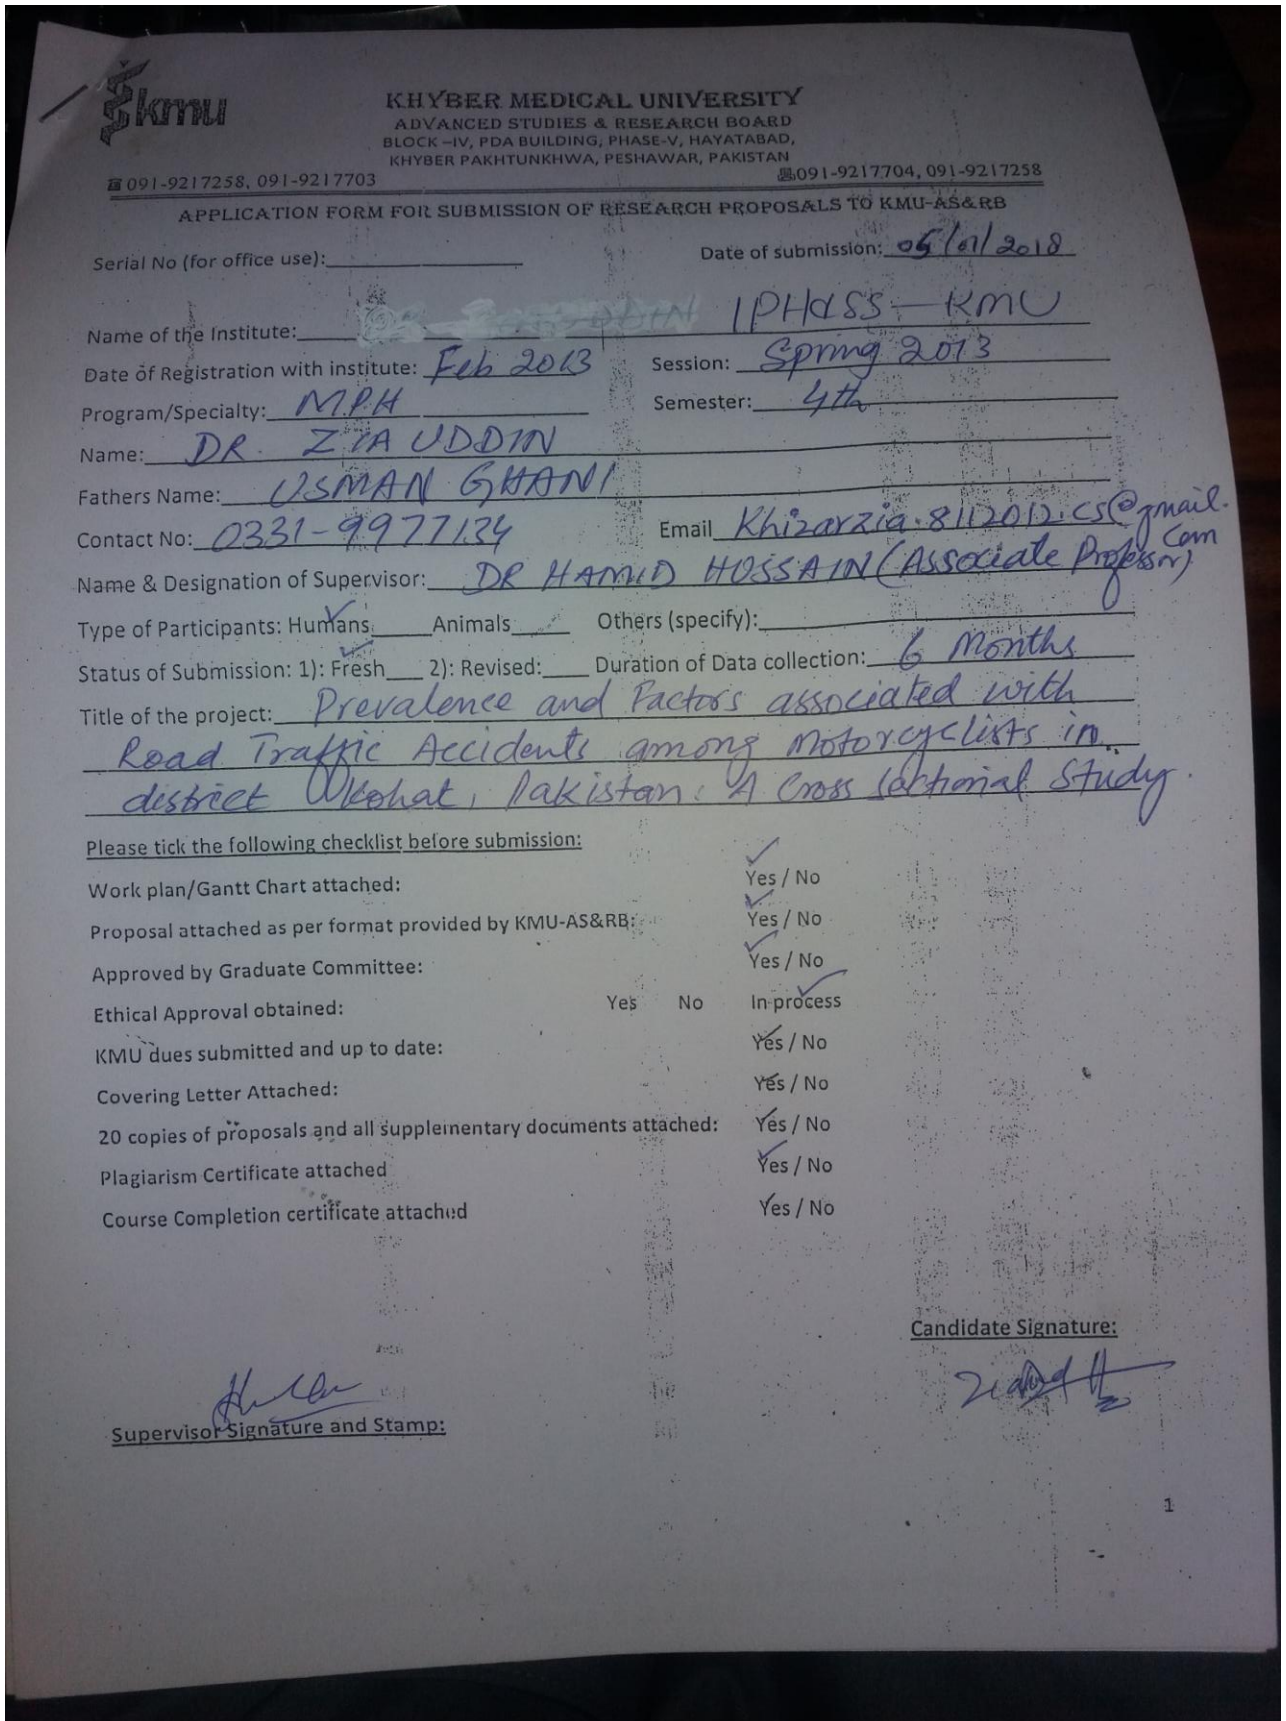 kmu
KHYBER MEDICAL UNIVERSITY
ADVANCED STUDIES & RESEARCH BOARD
BLOCK –IV, PDA BUILDING, PHASE-V, HAYATABAD,
KHYBER PAKHTUNKHWA, PESHAWAR, PAKISTAN
091-9217258, 091-9217703 091-9217704, 091-9217258
APPLICATION FORM FOR SUBMISSION OF RESEARCH PROPOSALS TO KMU-AS&RB
Serial No (for office use): Date of submission: 05/01/2018
Name of the Institute: IPH&SS – KMU
Date of Registration with institute: Feb 2013 Session: Spring 2013
Program/Specialty: M.P.H Semester: 4th
Name: DR. ZIA UDDIN
Fathers Name: USMAN GHANI
Contact No: 0331-9977134 Email Khizarzia.8112012.cs@gmail.com
Name & Designation of Supervisor: DR HAMID HUSSAIN (Associate Professor)
Type of Participants: Humans ✓ Animals Others (specify):
Status of Submission: 1): Fresh ✓ 2): Revised: Duration of Data collection: 6 Months
Title of the project: Prevalence and Factors associated with
Road Traffic Accidents among Motorcyclists in
district Kohat, Pakistan: A Cross Sectional Study.
Please tick the following checklist before submission:
Work plan/Gantt Chart attached: Yes / No
Proposal attached as per format provided by KMU-AS&RB: Yes / No
Approved by Graduate Committee: Yes / No
Ethical Approval obtained: Yes No In process
KMU dues submitted and up to date: Yes / No
Covering Letter Attached: Yes / No
20 copies of proposals and all supplementary documents attached: Yes / No
Plagiarism Certificate attached Yes / No
Course Completion certificate attached Yes / No
Candidate Signature:
Supervisor Signature and Stamp:
1